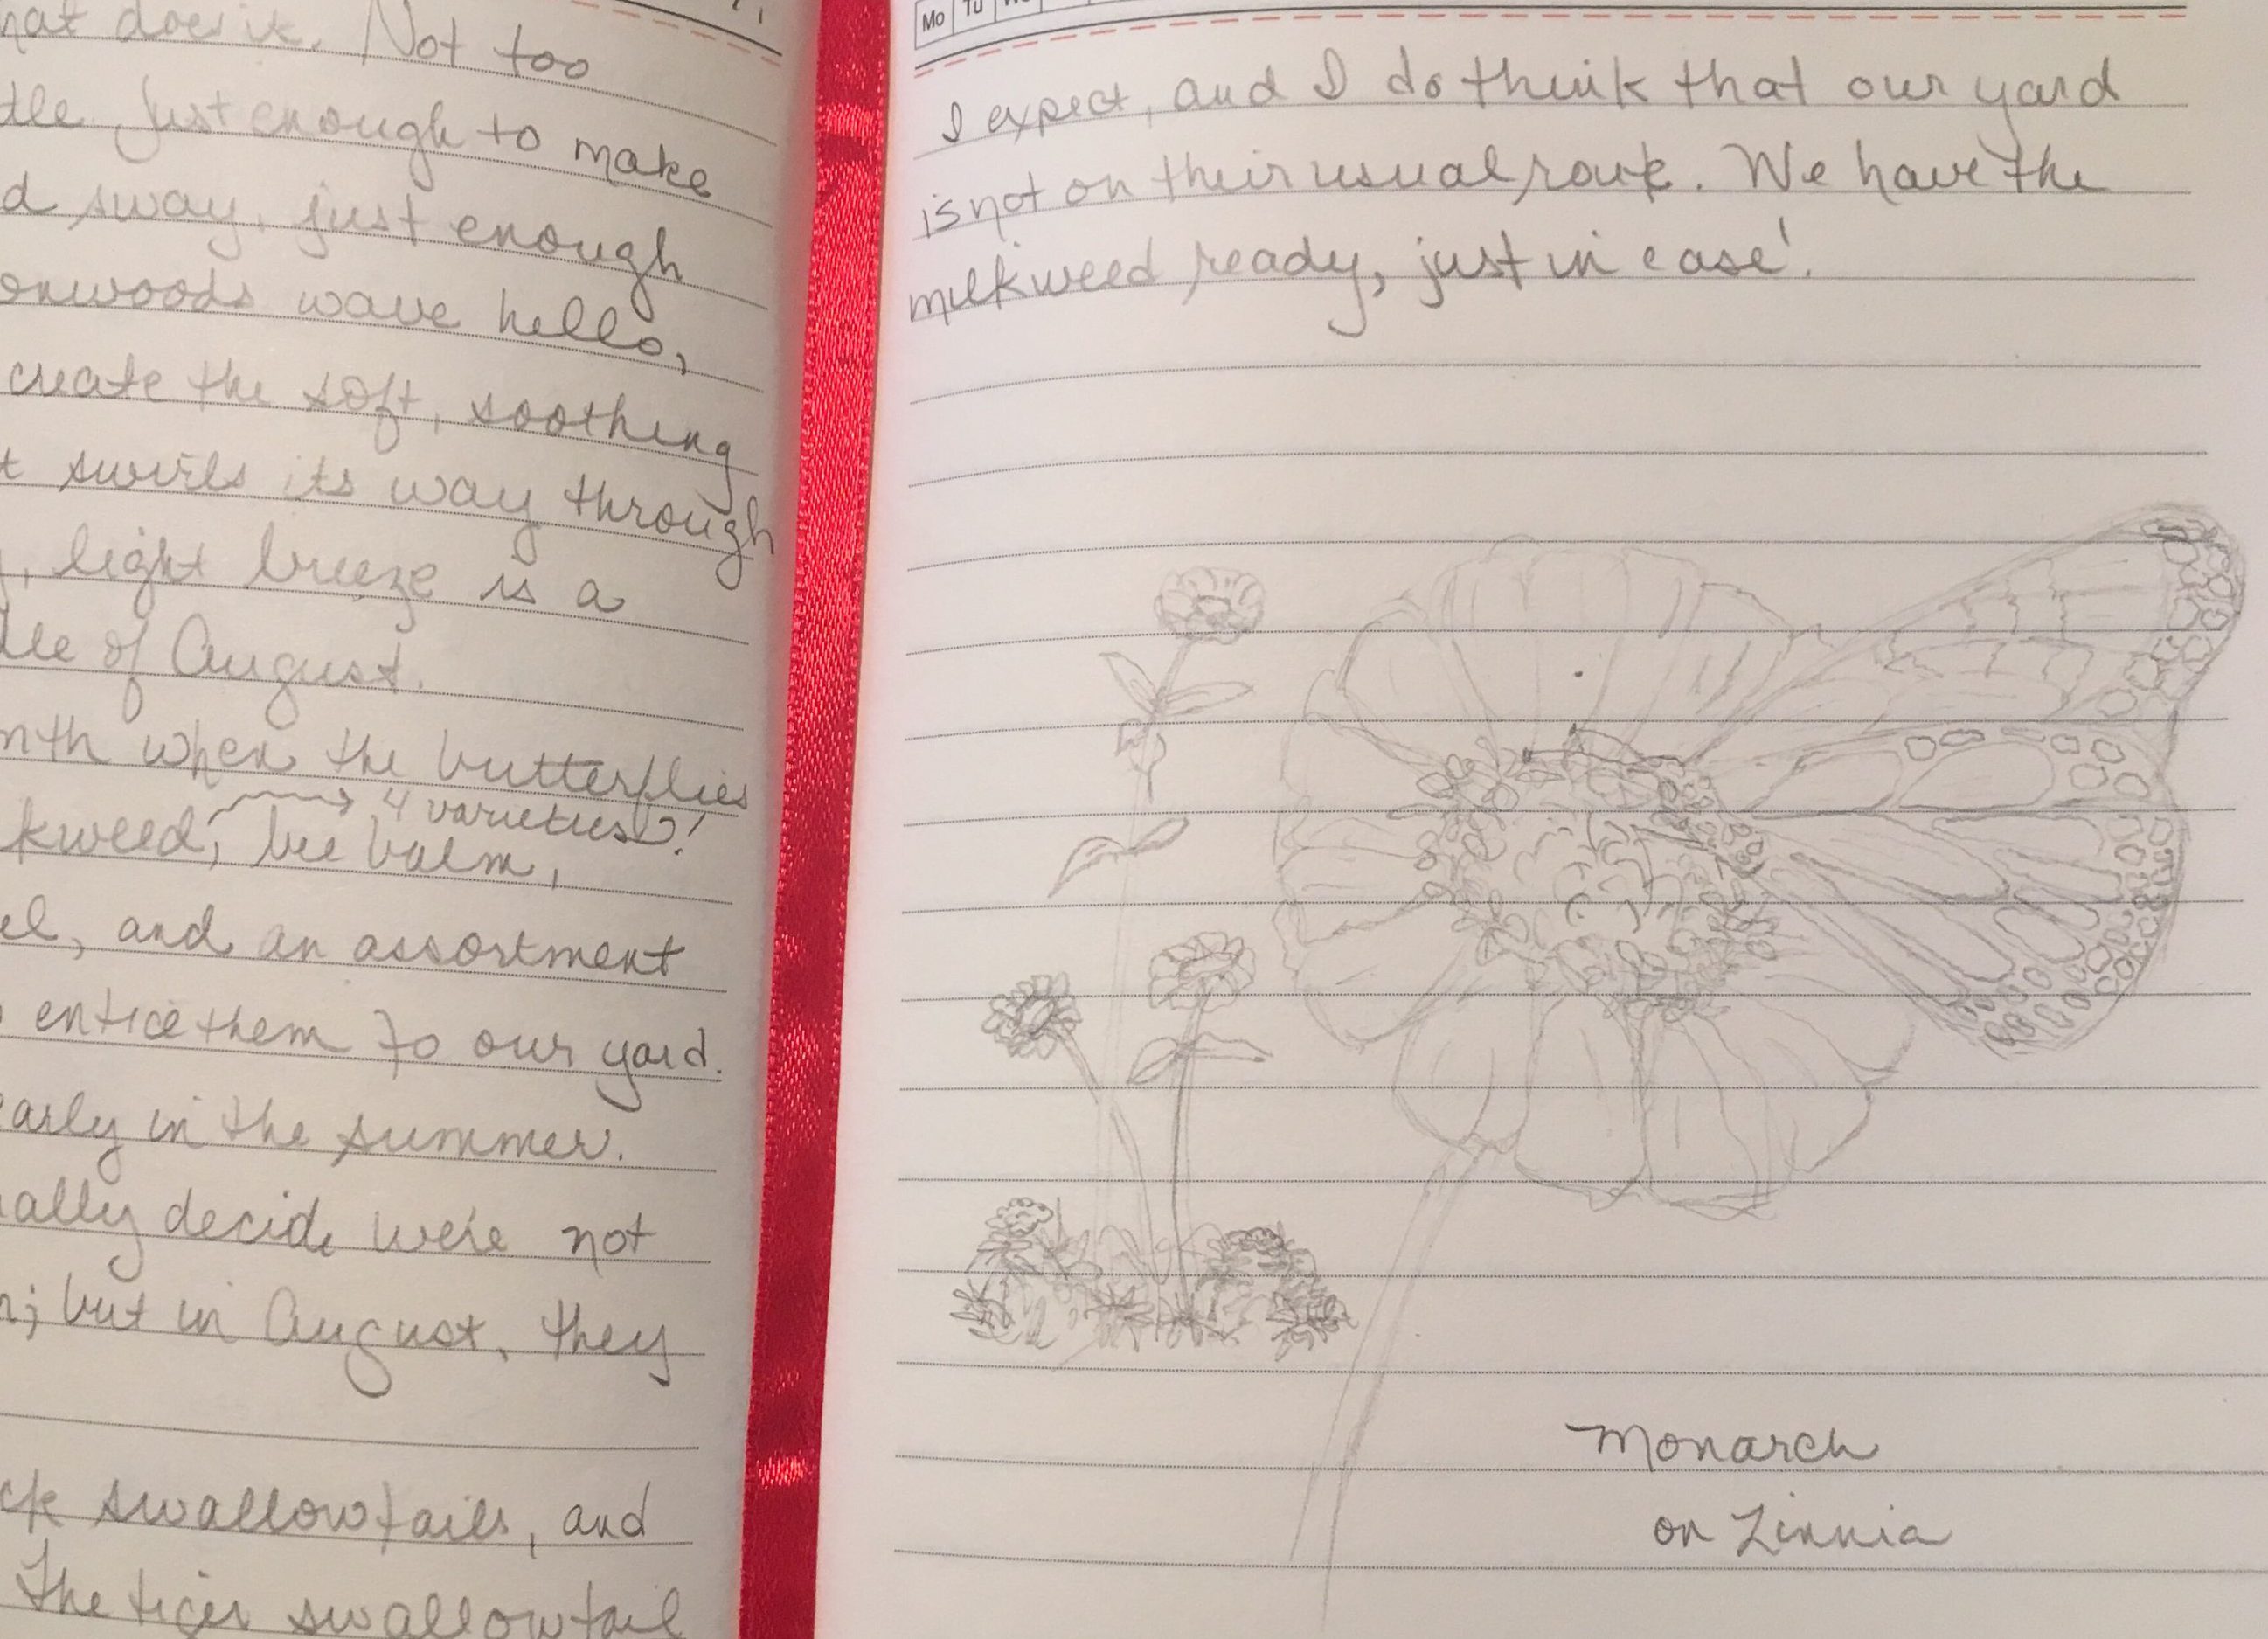 hat does it. Not too
tle. Just enough to make
d sway, just enough
onwoods wave hello,
create the soft, soothing
t swirls its way through
, light breeze is a
lle of August.
nth when the butterflies
→ 4 varieties!
kweed, bee balm,
el, and an assortment
entice them to our yard.
early in the summer.
nally decide we're not
; but in August, they
ck swallowtails, and
The tiger swallowtail
Mo Tu
I expect, and I do think that our yard
is not on their usual route. We have the
milkweed ready, just in case!
Monarch
on Zinnia